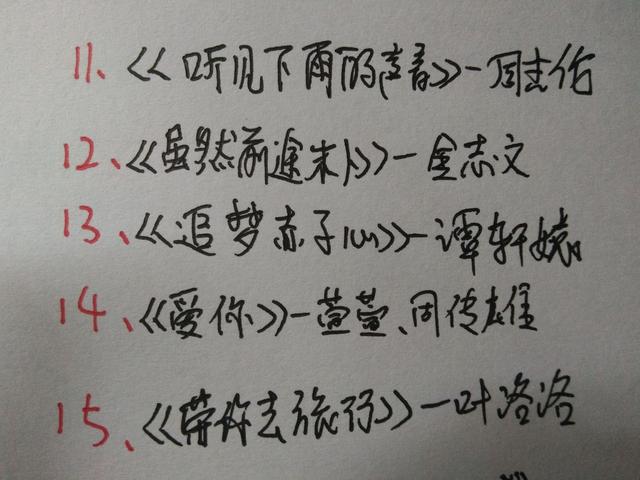 11、《听见下雨的声音》—周杰伦
12、《虽然前途未卜》—金志文
13、《追梦赤子心》—谭轩辕
14、《爱你》—萱萱、周传雄
15、《带你去旅行》—叶洛洛